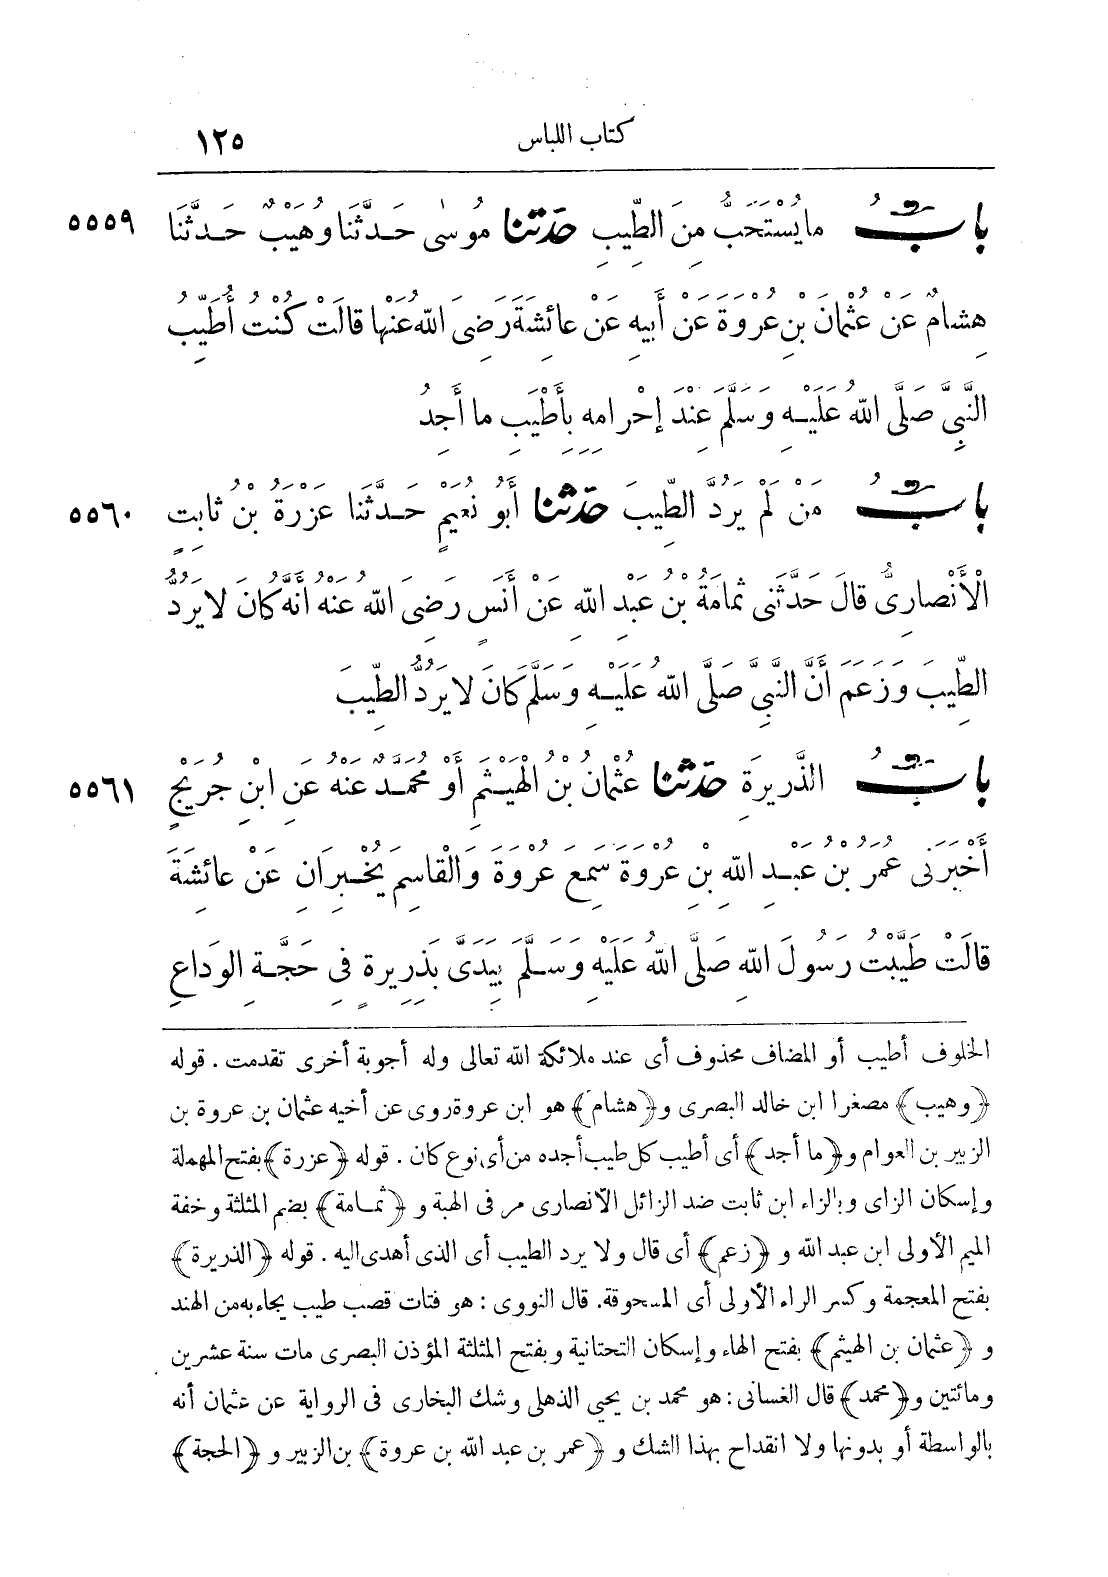 كتاب اللباس ١٢٥
بابُ مَا يُسْتَحَبُّ مِنَ الطِّيبِ حدثنا مُوسَى حَدَّثَنَا وُهَيْبٌ حَدَّثَنَا ٥٥٥٩
هِشَامٌ عَنْ عُثْمَانَ بْنِ عُرْوَةَ عَنْ أَبِيهِ عَنْ عَائِشَةَ رَضِىَ اللهُ عَنْهَا قَالَتْ كُنْتُ أُطَيِّبُ
النَّبِىَّ صَلَّى اللهُ عَلَيْهِ وَسَلَّمَ عِنْدَ إِحْرَامِهِ بِأَطْيَبِ مَا أَجِدُ
بابُ مَنْ لَمْ يَرُدَّ الطِّيبَ حدثنا أَبُو نُعَيْمٍ حَدَّثَنَا عَزْرَةُ بْنُ ثَابِتٍ ٥٥٦٠
الْأَنْصَارِىُّ قَالَ حَدَّثَنِى ثُمَامَةُ بْنُ عَبْدِ اللهِ عَنْ أَنَسٍ رَضِىَ اللهُ عَنْهُ أَنَّهُ كَانَ لَا يَرُدُّ
الطِّيبَ وَزَعَمَ أَنَّ النَّبِىَّ صَلَّى اللهُ عَلَيْهِ وَسَلَّمَ كَانَ لَا يَرُدُّ الطِّيبَ
بابُ الذَّرِيرَةِ حدثنا عُثْمَانُ بْنُ الْهَيْثَمِ أَوْ مُحَمَّدٌ عَنْهُ عَنِ ابْنِ جُرَيْجٍ ٥٥٦١
أَخْبَرَنِى عُمَرُ بْنُ عَبْدِ اللهِ بْنِ عُرْوَةَ سَمِعَ عُرْوَةَ وَالْقَاسِمَ يُخْبِرَانِ عَنْ عَائِشَةَ
قَالَتْ طَيَّبْتُ رَسُولَ اللهِ صَلَّى اللهُ عَلَيْهِ وَسَلَّمَ بِيَدَىَّ بِذَرِيرَةٍ فِى حَجَّةِ الْوَدَاعِ
الخلوف أطيب أو المضاف محذوف أى عند ملائكة الله تعالى وله أجوبة أخرى تقدمت . قوله
﴿وهيب﴾ مصغرا ابن خالد البصرى و﴿هشام﴾ هو ابن عروة روى عن أخيه عثمان بن عروة بن
الزبير بن العوام و﴿ما أجد﴾ أى أطيب كل طيب أجده من أى نوع كان . قوله ﴿عزرة﴾ بفتح المهملة
وإسكان الزاى وبالراء ابن ثابت ضد الزائل الأنصارى مر فى الهبة و ﴿ثمامة﴾ بضم المثلثة وخفة
الميم الأولى ابن عبد الله و ﴿زعم﴾ أى قال ولا يرد الطيب أى الذى أهدى اليه . قوله ﴿الذريرة﴾
بفتح المعجمة وكسر الراء الأولى أى المسحوقة. قال النووى : هو فتات قصب طيب يجاء به من الهند
و ﴿عثمان بن الهيثم﴾ بفتح الهاء وإسكان التحتانية وبفتح المثلثة المؤذن البصرى مات سنة عشرين
ومائتين و﴿محمد﴾ قال الغسانى : هو محمد بن يحيى الذهلى وشك البخارى فى الرواية عن عثمان أنه
بالواسطة أو بدونها ولا انقداح بهذا الشك و ﴿عمر بن عبد الله بن عروة﴾ بن الزبير و ﴿الحجة﴾